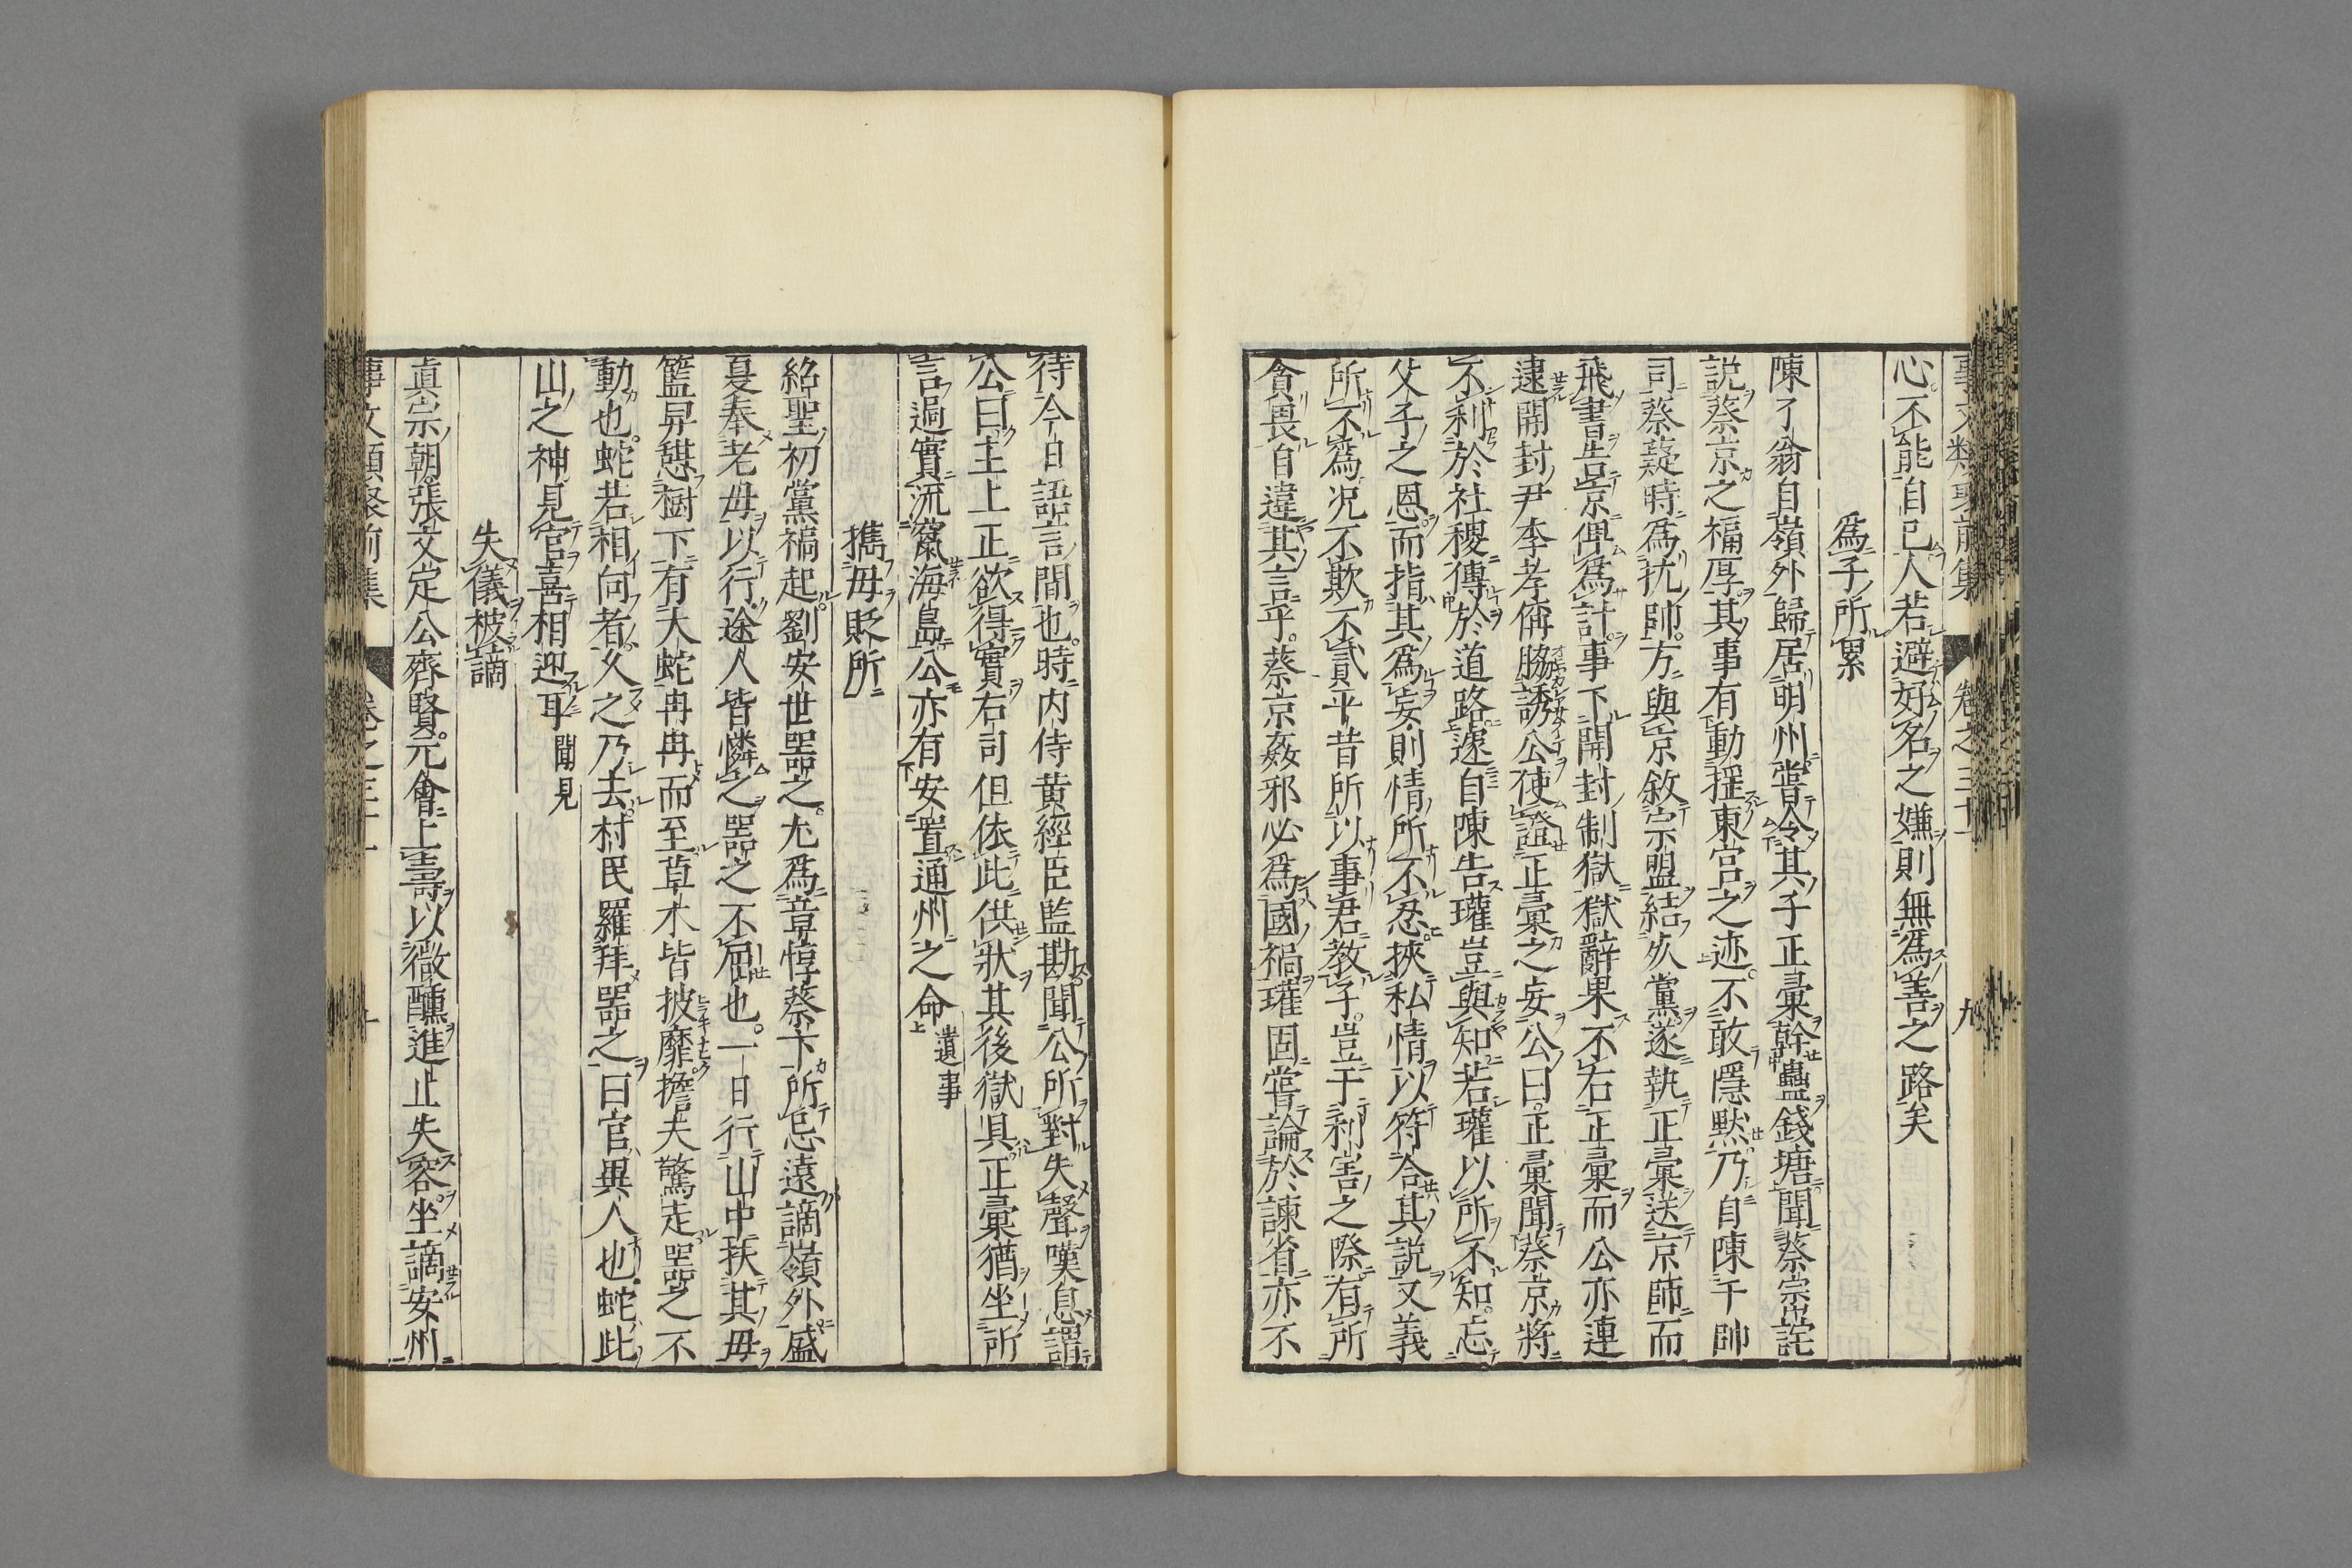 事文類聚前集 卷之三十一 九
心不能自已人若避好名之嫌則無爲善之路矣
爲子所累
陳了翁自嶺外歸居明州嘗令其子正彙幹蠱錢塘聞蔡崇詫
説蔡京之福厚其事有動揺東宮之迹不敢隱黙乃自陳于帥
司蔡薿時爲抗帥方與京敘宗盟結死黨遂執正彙送京師而
飛書告京俾爲計事下開封制獄獄辭果不右正彙而公亦連
逮開封尹李孝偁脇誘公使證正彙之妄公曰正彙聞蔡京將
不利於社稷傳於道路遽自陳告瓘豈與知若瓘以所不知忘
父子之恩而指其爲妄則情所不忍挾私情以符合其説又義
所不爲况不欺不貳平昔所以事君教子豈于利害之際有所
貪畏自違其言乎蔡京姦邪必爲國禍瓘固嘗論於諫省亦不
待今日語言間也時内侍黄經臣監勘聞公所對失聲嘆息謂
公曰主上正欲得實右司但依此供狀其後獄具正彙猶坐所
言過實流竄海島公亦有安置通州之命 遺事
携母貶所
紹聖初黨禍起劉安世噐之尤爲章惇蔡卞所忌遠謫嶺外盛
夏奉老母以行途人皆憐之噐之不屈也一日行山中扶其母
籃舁憇樹下有大蛇冉冉而至草木皆披靡擔夫驚走噐之不
動也蛇若相向者久之乃去村民羅拜噐之曰官異人也蛇此
山之神見官喜相迎耳 聞見
失儀被謫
真宗朝張文定公齊賢元會上壽以微醺進止失容坐謫安州
事文類聚前集 卷之三十一 十